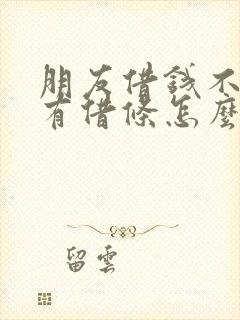 朋友借钱不
有借條怎麼
留雲